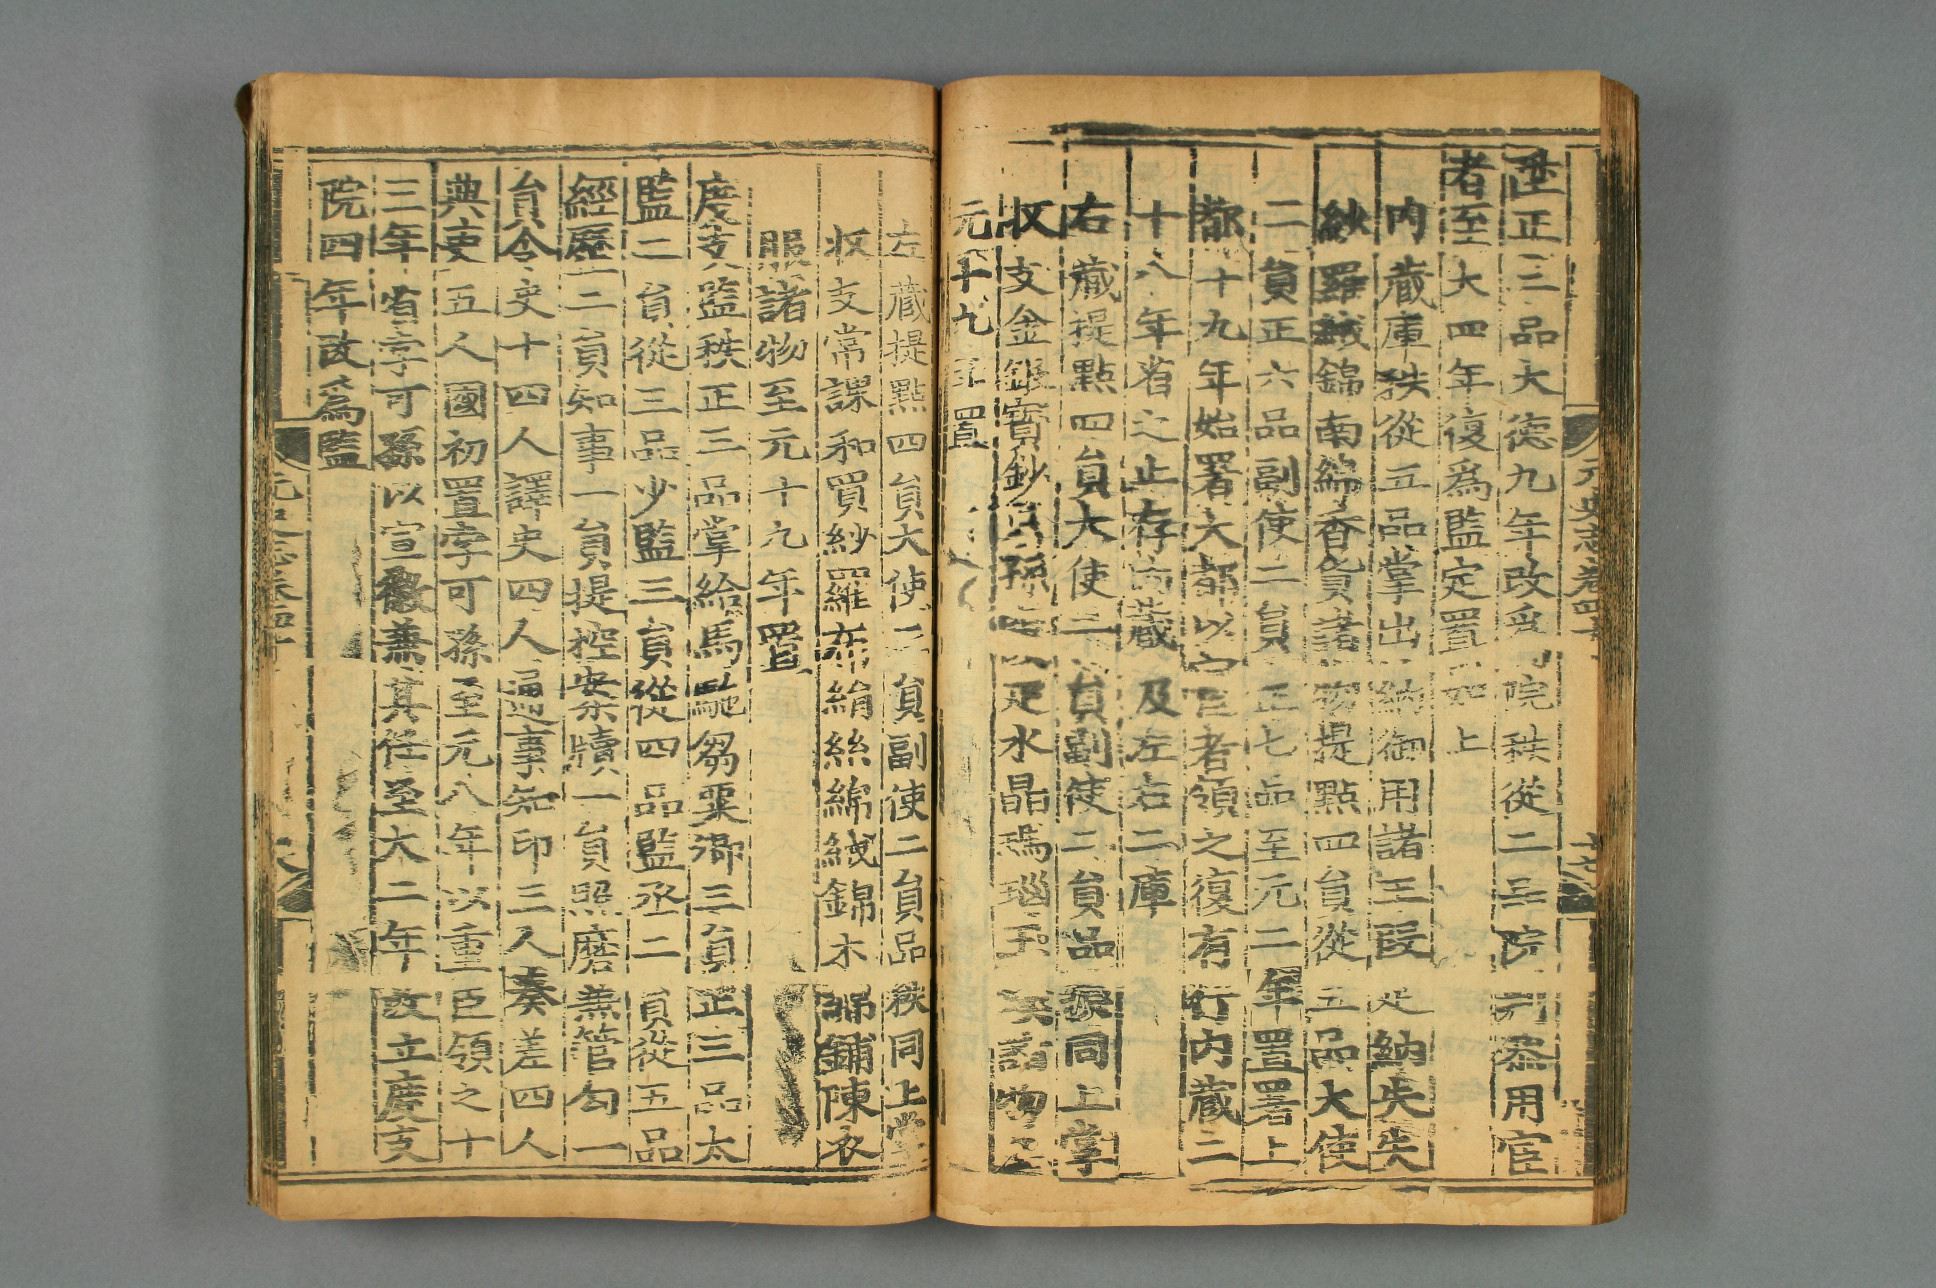 丞正三品大德九年改爲院秩從二品院判參用宦
者至大四年復爲監定置如上
內藏庫秩從五品掌出納御用諸王段疋納失失
紗羅絨錦南綿香貨諸物提點四員從五品大使
二員正六品副使二員正七品至元二年置署上
都十九年始署大都以宦者領之復有行內藏二
十八年省之止存內藏及左右二庫
右藏提點四員大使二員副使二員品秩同上掌
収支金銀寶鈔只孫 段疋水晶瑪瑙玉 諸物至
元十九年置
左藏提點四員大使二員副使二員品秩同上掌
収支常課和買紗羅布絹絲綿絨錦木綿鋪陳衣
服諸物至元十九年置
度支監秩正三品掌給馬駞芻粟卿三員正三品太
監二員從三品少監三員從四品監丞二員從五品
經歷二員知事一員提控案牘一員照磨兼管勾一
員令史十四人譯史四人通事知印三人奏差四人
典吏五人國初置孛可孫至元八年以重臣領之十
三年省孛可孫以宣徽兼其任至大二年改立度支
院四年改爲監
元史志卷四十
十七